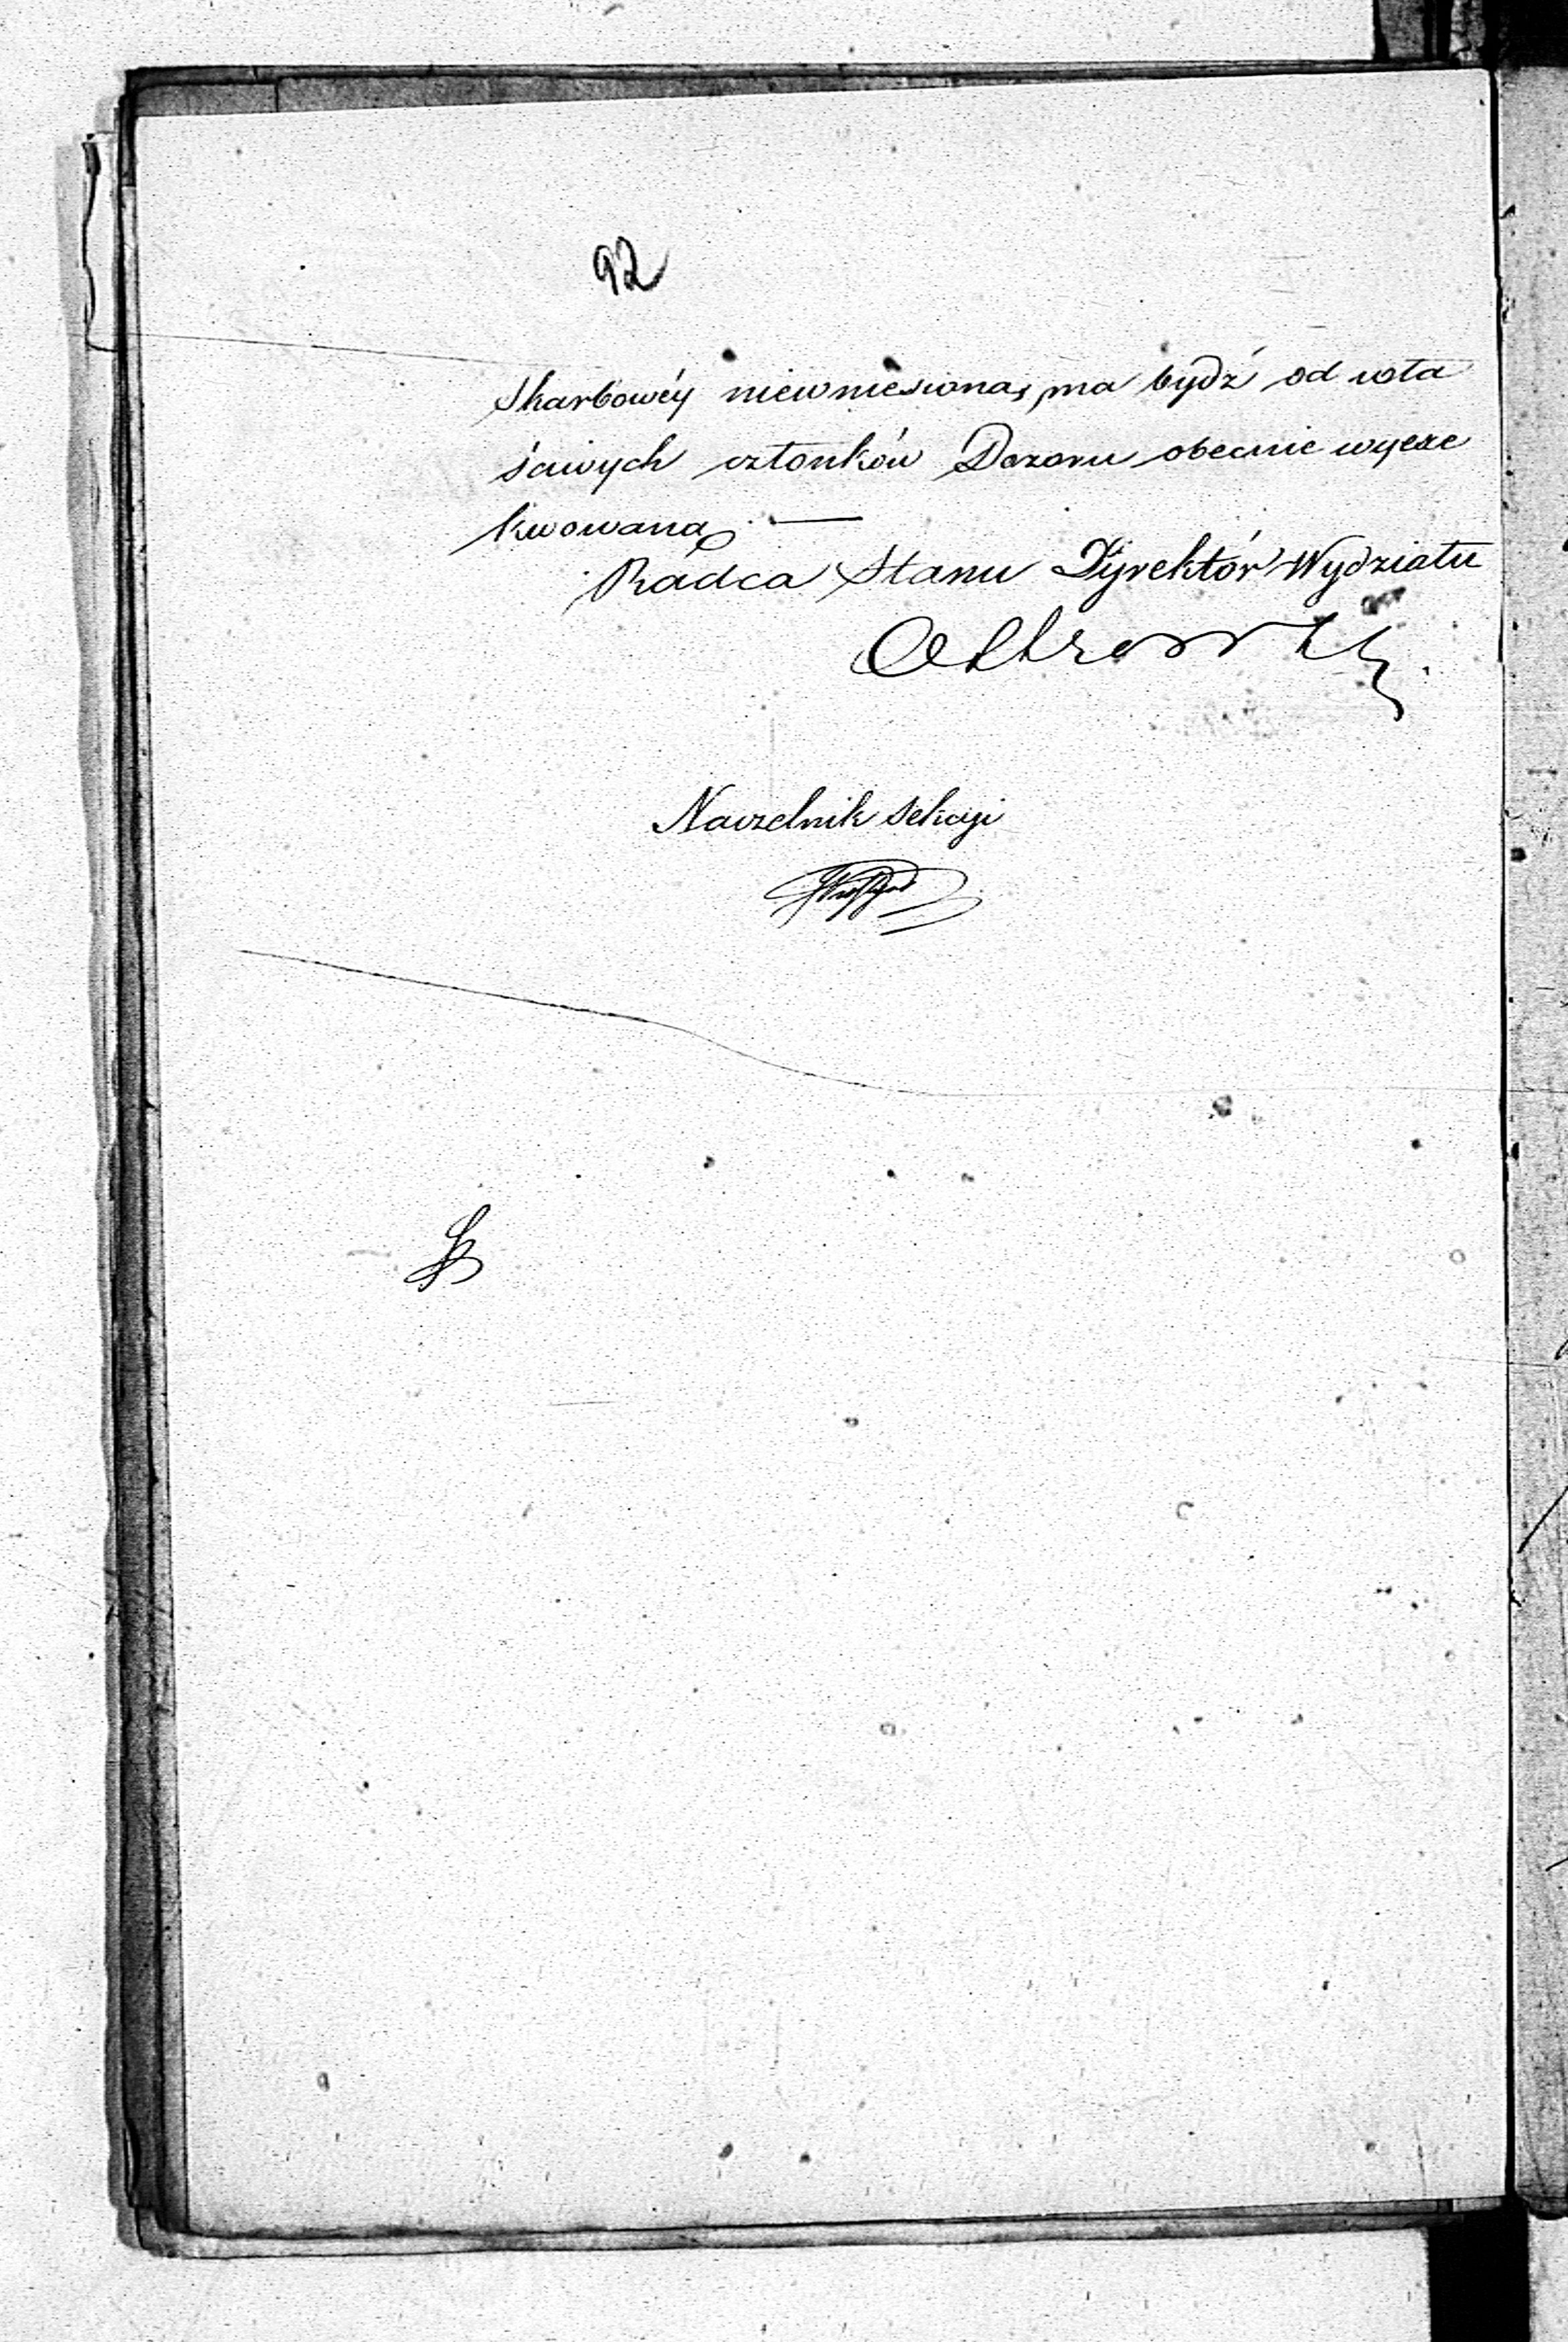 92
Skarbowéy niewniesiona, ma bydź od wła
ściwych członków Dozoru obecnie wyexe
kwowaną. —
Radca Stanu Dyrektór Wydziału
Naczelnik Sekcyi